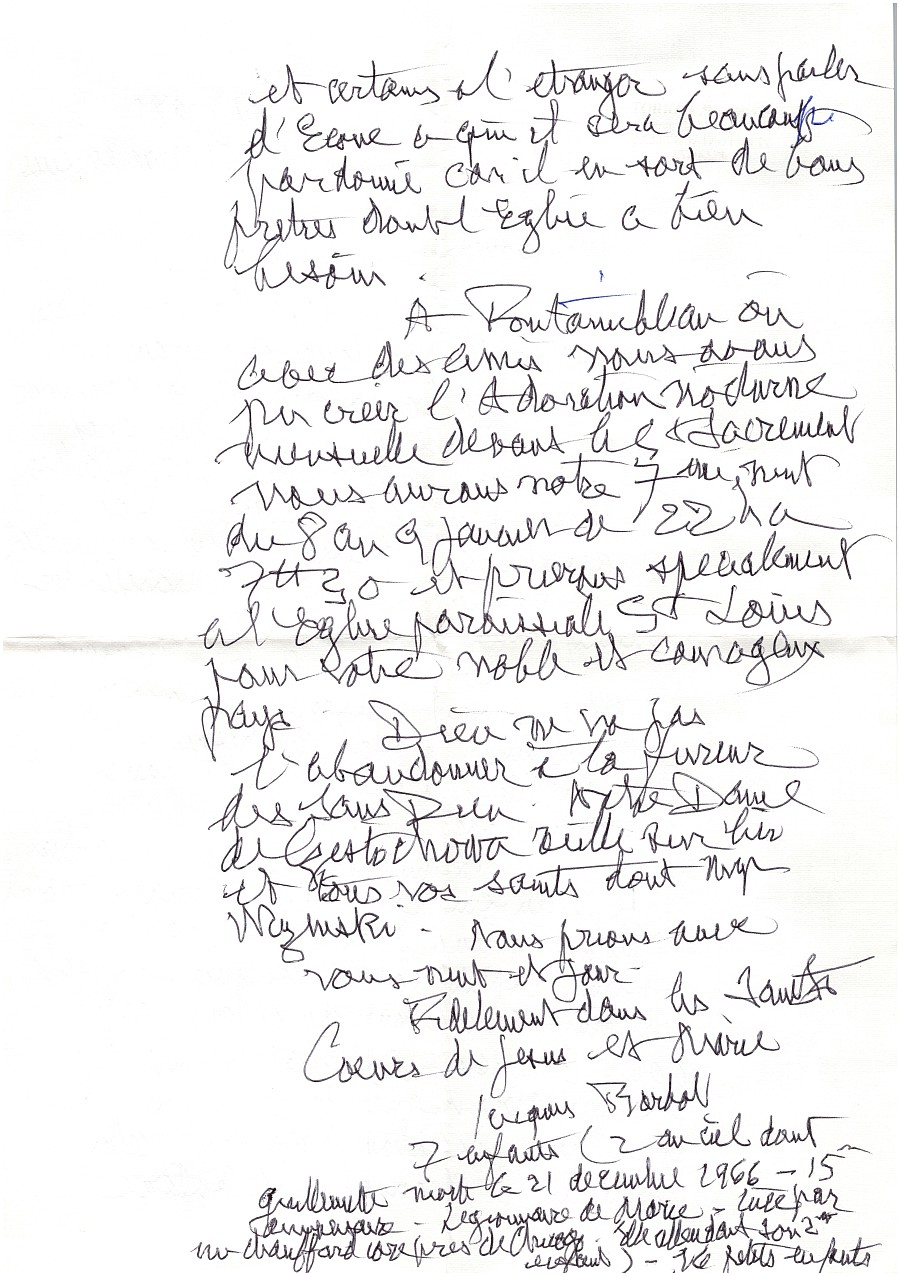 et certains à l'étranger sans parler
d'Econe a qui il sera beaucoup
pardonné car il en sort de bons
prêtres dont l'Eglise a bien
besoin.
A Fontainebleau où
avec des amis nous avons
pu créer l'Adoration nocturne
mensuelle devant le St Sacrement
nous aurons notre 7ème nuit
du 8 au 9 Janvier de 22h a
7H30 et prierons spécialement
a l'Eglise paroissiale St Louis
pour votre noble et courageux
pays. Dieu ne va pas
l'abandonner à la fureur
des sans Dieu. Notre Dame
de Czestochowa veille sur lui
et tous vos saints dont Mgr
Wszynski. Nous prions avec
vous nuit et jour
Fidelement dans les Saints
Coeurs de Jesus et Marie
Jacques
7 enfants (2 au ciel dont
Guillemette morte le 21 decembre 1966 - 15
Legionnaire de Marie - tuée par
un chauffard ivre près de elle attendait son 2e
enfant) - petits-enfants